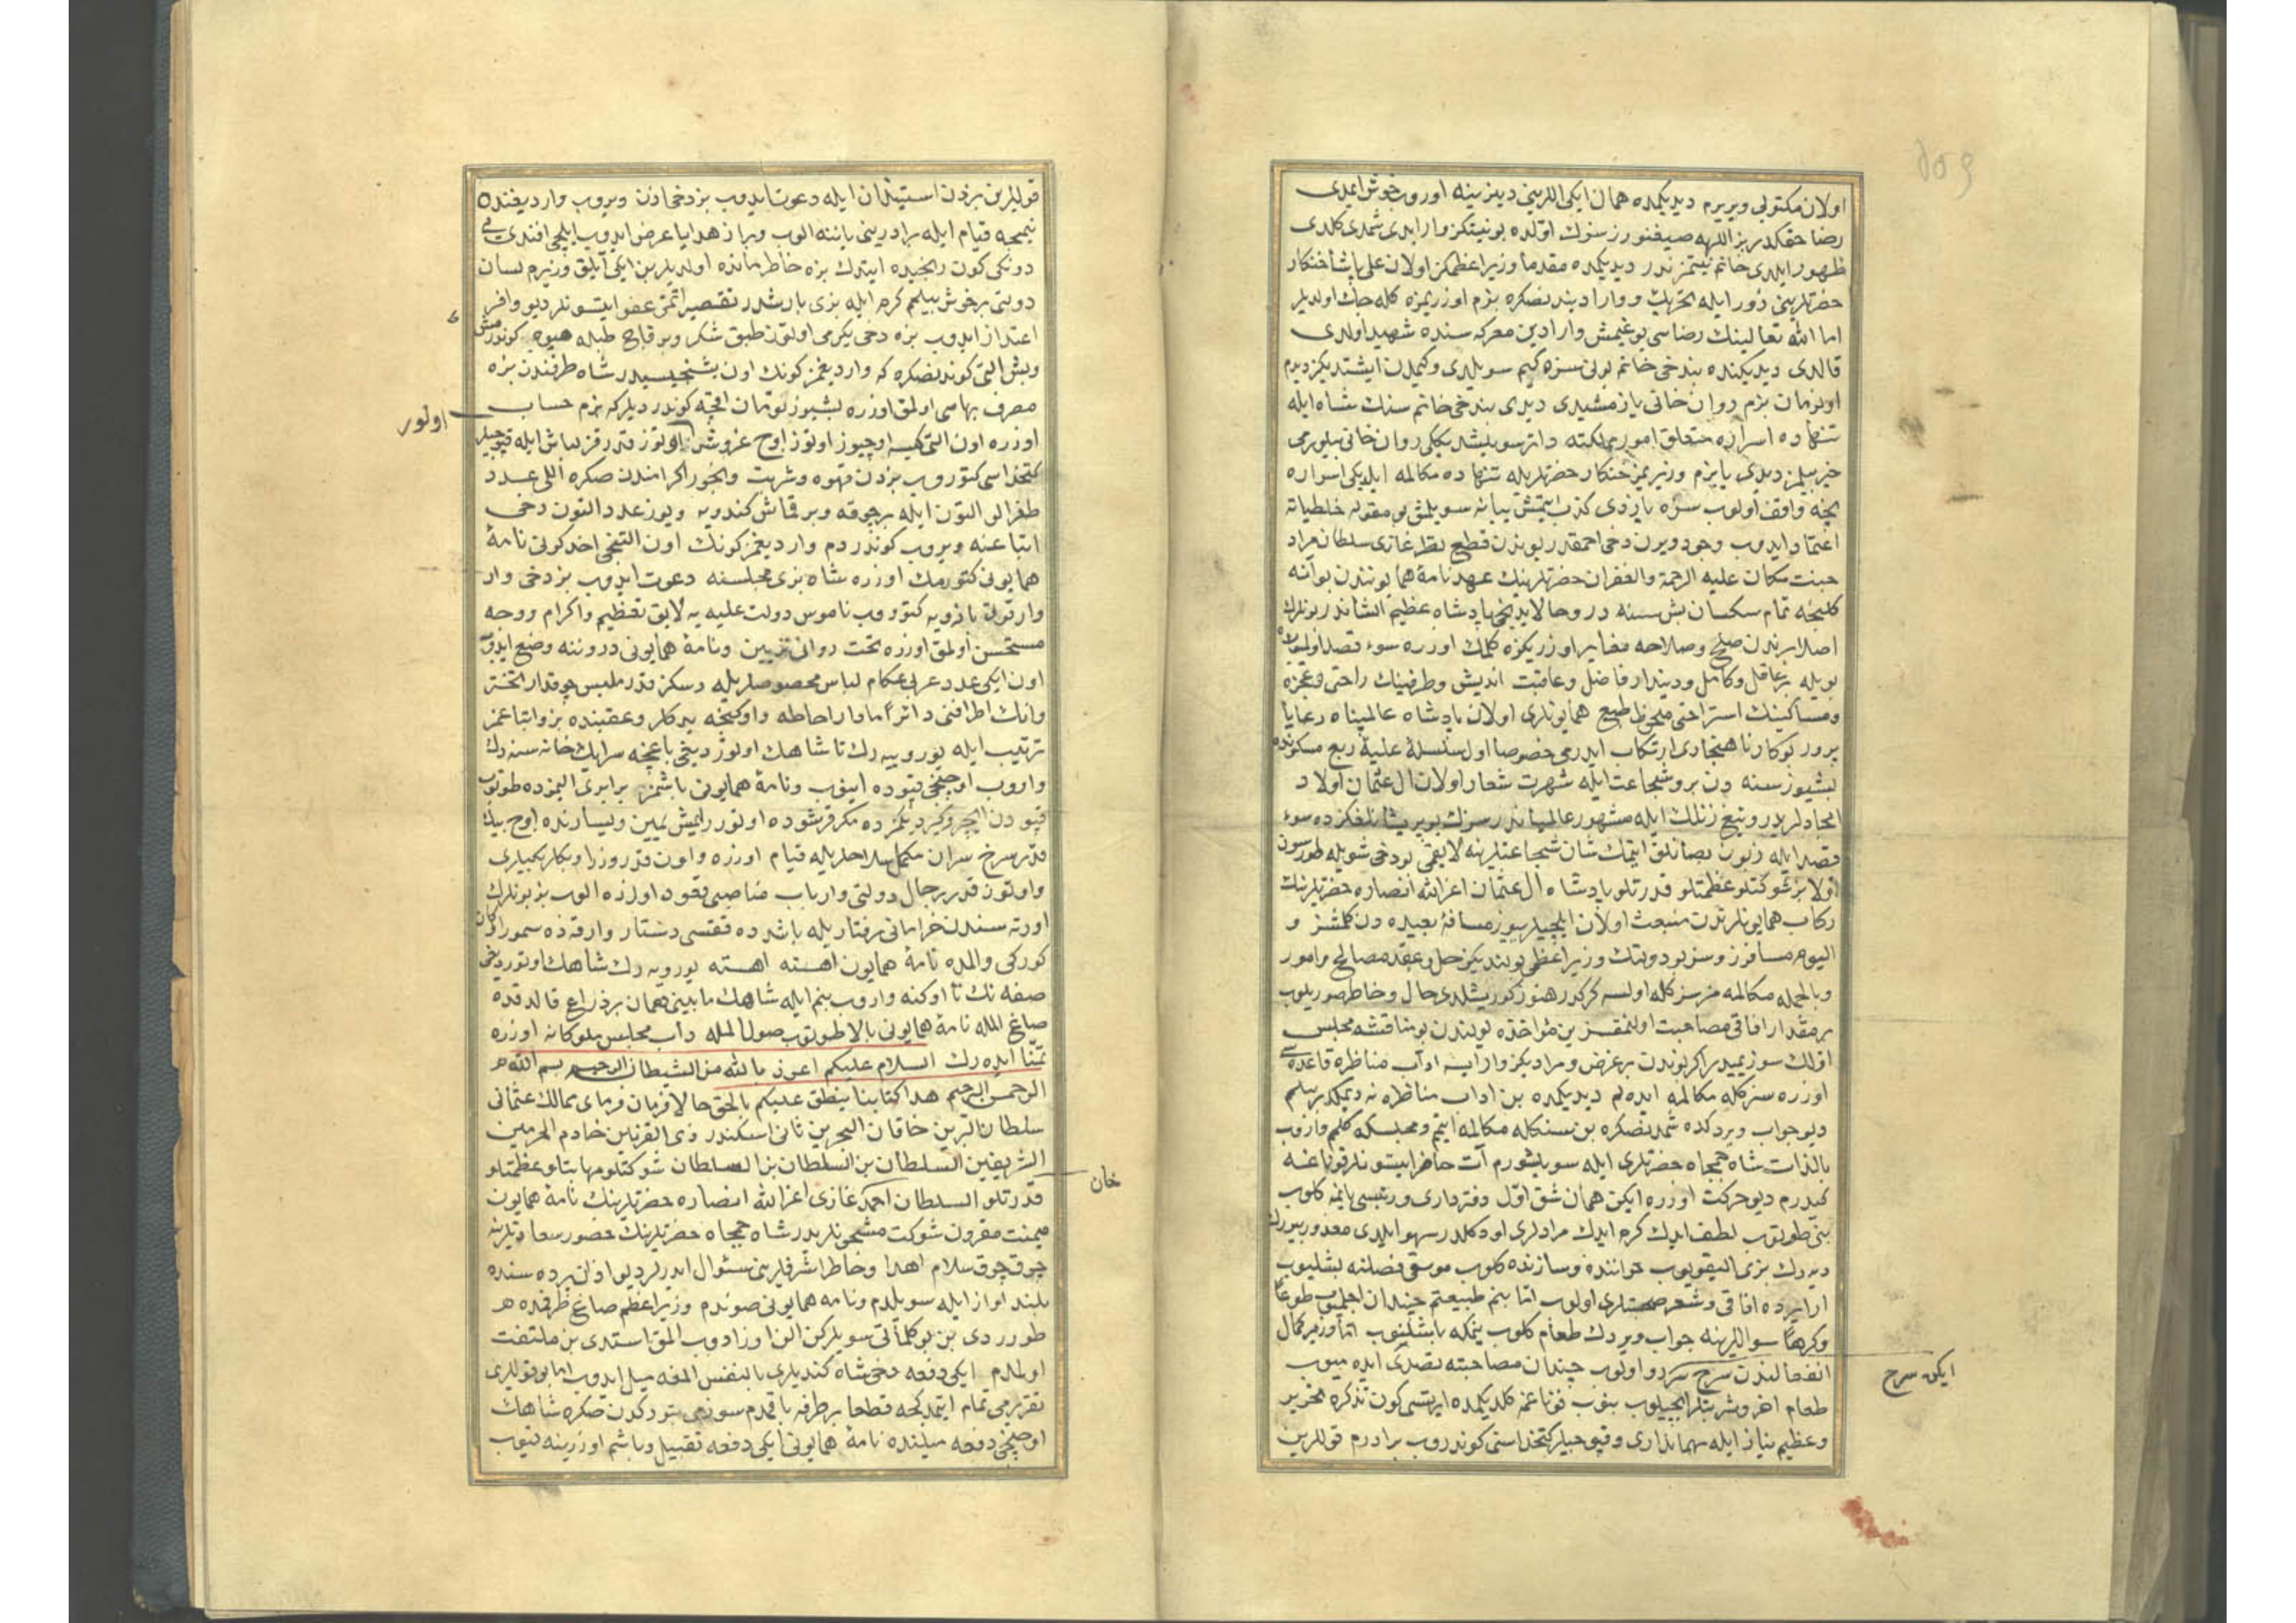 اولان مكتوبی ويريرم ديديكمده همان ايكی اللرينی ديزينه اوروب خوش ايمدی
رضا حقكدر بز اللهه صيغنورز سنوك اوڭده بو نيتكز وار ايدی شمدی كلدی
ظهور ايلدی خانم نيتمز ندر ديديكمده مقدما وزير اعظمكز اولان علی پاشا خنكار
حضرتلرينی زور ايله تحريك و وارادين‌دنصكره بزم اوزريمزه كله‌جك اولديلر
اما الله تعالينك رضاسی يوغيمش وارادين معركه سنده شهيد اولدی
قالدی ديديكنده بندخی خانم بونی سزه كيم سويلدی وكيمدن ايشتديكز ديدم
اول زمان بزم روان خانی يازمشيدی ديدی بندخی خانم سزك شاه ايله
تنهاده اسرازه متعلق امور مملكته دائر سويلشديككی روان خانی بيلورمی
خير بيلمز ديدی يا بزم وزيريمز خنكار حضرتلريله تنهاده مكالمه ايلديكی اسراره
نجه واقف اولوب سزه يازدی كذب ايتمش يبانه سويلمش بو مقوله خلطياته
اعتماد ايدوب وجود ويرن دخی احمقدر بوندن قطع نظر غازی سلطان مراد
جنت مكان عليه الرحمة والغفران حضرتلرينك عهدنامهٔ همايونندن بو آنه
كلنجه تمام سكسان بش سنه در و حالا بديخی پادشاه عظيم الشاندر بونلرك
اصلا برندن صلح وصلاحه مغاير اوزريكزه كلمك اوزره سوء قصد اولنمدی
بويله بر عاقل وكامل وديندار فاضل وعاقبت انديش وطرفينك راحتی وعجزه
ومساكينك استراحتی ملحوظ طبع همايونلری اولان پادشاه عالمپناه رعايا
پرور بو كار ناهنجاری ارتكاب ايدرمی خصوصا اول سلسلهٔ عليهٔ ربع مسكونده
بشيوز سنه دن برو شجاعت ايله شهرت شعار اولان ال عثمان اولاد
امجادلريدر وتيغ زنلك ايله مشهور عالميان‌در سزك بو پريشانلغكزده سوء
قصد ايله زبون بصانلق ايتمك شان شجاعتلرينه لايقمی بودخی شويله طورسون
اولا بز شوكتلو عظمتلو قدرتلو پادشاه ال عثمان اعز الله انصاره حضرتلرينك
ركاب همايونلرندن منبعث اولان ايلچيلريوز مسافهٔ بعيده دن كلمشز و
اليوم مسافرز وسز بو دولتك وزير اعظمی بولنديكز حل وعقد مصالح وامور
وبالجمله مكالمه مز سزكله اولسه كركدر هنوز كوريشلدی حال وخاطر صوريلوب
بر مقدار افاقی مصاحبت اولنمقسزين مؤاخذه يولندن بو مناقشه مجلس
اولك سوزيميدر اكر بوندن بر غرض ومراديكز وار ايسه اداب مناظره قاعده سی
اوزره سزكله مكالمه ايده‌لم ديديكمده بن اداب مناظره نه ديمكدر بيلم
ديو جواب ويردكده شمدنصكره بن سنكله مكالمه ايتمم ومجلسكه كلمم واروب
بالذات شاه جمجاه حضرتلری ايله سويلشورم آت حاضر ايتسونلر قوناغمه
كيدرم ديو حركت اوزره ايكن همان شق اول دفترداری ورئيسی يانمه كلوب
بنی طوتوب لطف ايدك كرم ايدك مرادلری او دكلدر سهو ايلدی معذور بيورك
ديه‌رك بزی اليقويوب خواننده وسازنده كلوب موسقی فصلنه بشليوب
ارالرده افاقی وشعر صحبتلری اولوب اما بنم طبيعتم چندان اچلميوب طوعا
وكرها سواللرينه جواب ويردك طعام كلوب يتمكه باشلنوب اما وزير كمال
انفعالندن سرخ سردو اولوب چندان مصاحبته تصدی ايده‌ميوب
ايكن سرخ
طعام اخر وشربتلر ايچيلوب بنوب قوناغمه كلديكمده ايرتسی كون تذكره تحرير
وعظيم نياز ايله مهمانداری وقپوجيلر كتخداسنی كوندروب برادرم قوللرين
قوللرين بزدن استيذان ايله دعوت ايدوب بز دخی اذن ويروب وارديغنده
نيمجه قيام ايله برادرينی ياننه الوب وبر از هدايا عرض ايدوب ايلچی افندی يی
دونكی كون رنجيده ايتدك بزه خاطرمانده اولديلر بن ايكی ايلق وزيرم لسان
دولتی بر خوش بيلمم كرم ايله بزی باريشدر تقصيراتمزی عفو ايتسونلر ديو وافر
اعتذار ايدوب بزه دخی يكرمی اوتوز طبق شكر وبر قاچ طبله ميوه كوندرمش
وبش التی كوندنصكره كه وارديغمز كونك اون بشنجيسيدر شاه طرفندن بزه
مصرف بهاسی اولمق اوزره بشيوز تومان اقچه كوندرديلر كه بزم حساب
اولور
اوزره اون التی كيسه اوچيوز اوتوز اوچ غروش اوتوز قدر قزلباش ايله قپوجيلر
كتخداسی كتوروب بزدن قهوه وشربت وبخور اكرامندن صكره اللی عدد
طغرالو التون ايله بر چوقه وبر قماش كندويه ويوز عدد التون دخی
اتباعنه ويروب كوندردم وارديغمز كونك اون التنجی احد كونی نامهٔ
همايونی كتورمك اوزره شاه بزی مجلسنه دعوت ايدوب بز دخی وار
وار قوت بازويه كتوروب ناموس دولت عليه يه لايق تعظيم واكرام ووجه
مستحسن اولمق اوزره تخت روانی تزيين ونامهٔ همايونی دروننه وضع ايدوب
اون ايكی عدد عربی عكام لباس مخصوصلريله وسكز قدر ملبس چوقدار تختك
وانك اطرافنی دائراً مادار احاطه واوكنجه يدكلر وعقبنده بز واتباعمز
ترتيب ايله يوروييه‌رك تا شاهك اوتوردیغی باغچه سرايك خانه سنه‌دك
واروب اوچنجی قپوده اينوب ونامهٔ همايونی باشمز برابری المزده طوتوب
قپودن ايچرو كيرديكمزده مكر قرشوده اوتوررايمش يمين ويسارنده اوچ بيك
قدر سرخ سران مكمل سلاحلريله قيام اوزره واون قدر وزرا وبكلربكيلری
واوتوز قدر رجال دولتی وارباب مناصبی قعود اوزره الوب بز بونلرك
اورته سندن خرامانی رفتار يله باشده قفتسی دستار وارقه‌ده سمور اركان
كوركی والمده نامهٔ همايون اهسته اهسته يوروييه‌رك شاهك اوتوردیغی
صفه نك تا اوكنه واروب بنم ايله شاهك مابينی همان بر ذراع قالدقده
صاغ المله نامهٔ همايونی بالا طوتوب صول المله داب مجلس ملوكانه اوزره
تمنّا ايده‌رك السلام عليكم اعوذ بالله من الشيطان الرجيم بسم الله
الرحمن الرحيم هذا كتابنا ينطق عليكم بالحق حالا فرمان فرمای ممالك عثمانی
سلطان البرين خاقان البحرين ثانی اسكندر ذی القرنين خادم الحرمين
الشريفين السلطان بن السلطان بن السلطان شوكتلو مهابتلو عظمتلو
خان
قدرتلو السلطان احمد غازی اعز الله انصاره حضرتلرينك نامهٔ همايون
ميمنت مقرون شوكت مشحونلريدر شاه جمجاه حضرتلرينك حضور سعادتلرينه
چوق چوق سلام اهدا وخاطر اشرفلرينی سئوال ايدرلر ديو اذان پرده سنده
بلند اواز ايله سويلدم ونامه همايونی صوندم وزير اعظم صاغ طرفمده
طورردی بن بو كلماتی سويلركن الن اوزادوب المق استدی بن ملتفت
اولمدم ايكی دفعه دخی شاه كنديلری بالنفس المغه ميل ايدوب اما بو قوللری
تقريرمی تمام ايتمدكجه قطعا بر طرفه باقمدم سوزمی بتوردكدن صكره شاهك
اوچنجی دفعه ميلنده نامهٔ همايونی ايكی دفعه تقبيل وباشم اوزرينه قيوب